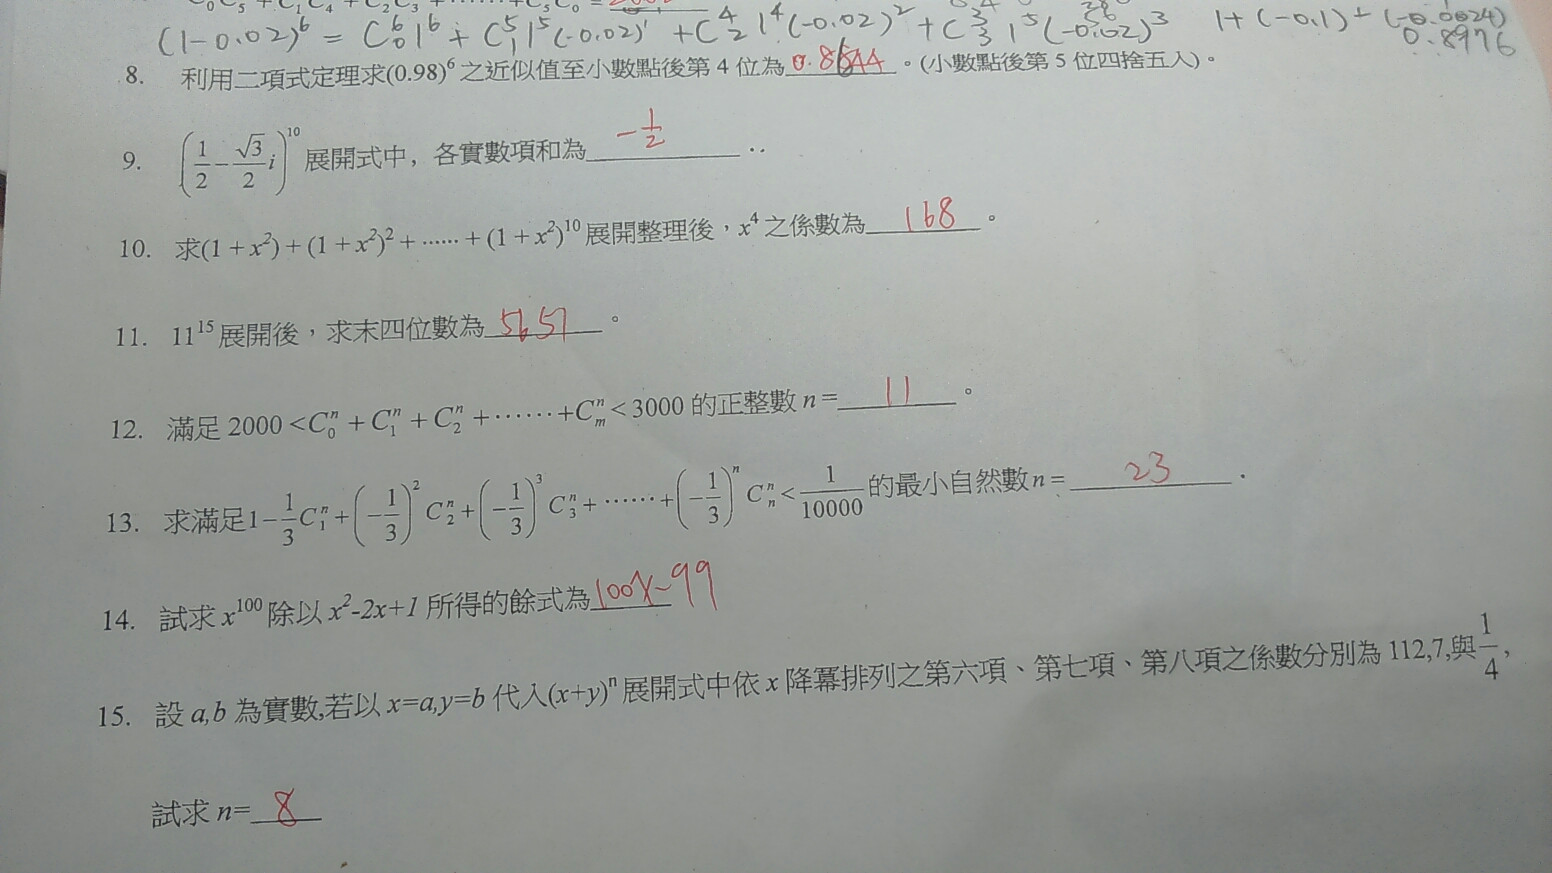 C₀C₅ + C₁C₄ + C₂C₃ + ⋯⋯ + C₅C₀ =
(1-0.02)⁶ = C⁶₀1⁶ + C⁵₁1⁵(-0.02)¹ + C⁴₂1⁴(-0.02)² + C³₃1⁵(-0.02)³ 1+(-0.1)+(-0.0024)
0.8976
8. 利用二項式定理求(0.98)⁶之近似值至小數點後第4位為 0.8644 。(小數點後第5位四捨五入)。
9. (1/2 - √3/2 i)¹⁰ 展開式中, 各實數項和為 -1/2 ..
10. 求(1+x²)+(1+x²)²+······+(1+x²)¹⁰展開整理後,x⁴之係數為 168 。
11. 11¹⁵展開後,求末四位數為 5651 。
12. 滿足2000<Cⁿ₀+Cⁿ₁+Cⁿ₂+⋯⋯+Cⁿₘ<3000的正整數n= 11 。
13. 求滿足1-1/3Cⁿ₁+(-1/3)²Cⁿ₂+(-1/3)³Cⁿ₃+⋯⋯+(-1/3)ⁿCⁿₙ<1/10000的最小自然數n= 23 .
14. 試求x¹⁰⁰除以x²-2x+1所得的餘式為 100x-99
15. 設a,b為實數,若以x=a,y=b代入(x+y)ⁿ展開式中依x降冪排列之第六項、第七項、第八項之係數分別為112,7,與1/4,
試求n= 8